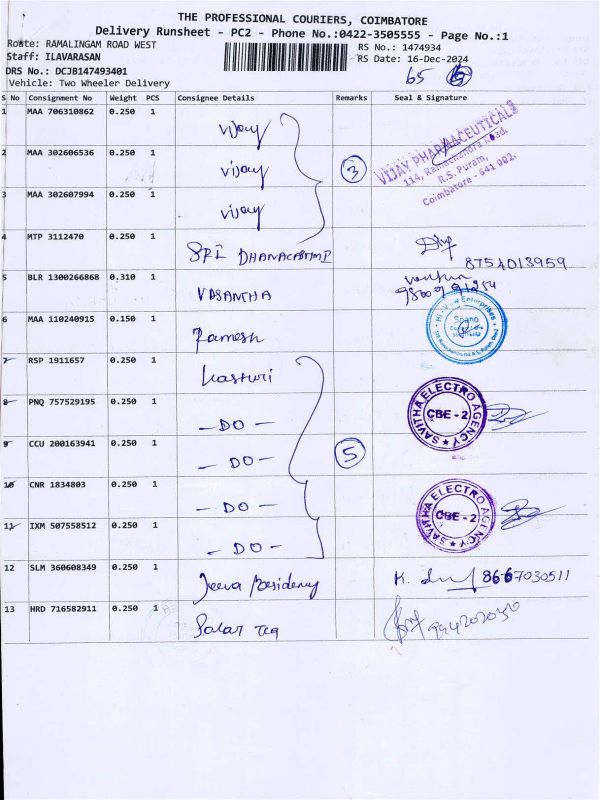 THE PROFESSIONAL COURIERS, COIMBATORE
Delivery Runsheet - PC2 - Phone No.:0422-3505555 - Page No.:1
Route: RAMALINGAM ROAD WEST
RS No.: 1474934
Staff: ILAVARASAN
RS Date: 16-Dec-2024
DRS No.: DCJB147493401
65
Vehicle: Two Wheeler Delivery
S No Consignment No Weight PCS Consignee Details Remarks Seal & Signature
1 MAA 706310862 0.250 1 vijay
2 MAA 302606536 0.250 1 vijay 3
VIJAY PHARMACEUTICALS
114, Ramachandra Road,
R.S. Puram,
Coimbatore - 641 002.
3 MAA 302607994 0.250 1 vijay
4 MTP 3112470 0.250 1 SRI 8754013959
5 BLR 1300266868 0.310 1 VASANTHA
6 MAA 110240915 0.150 1 Ramesh
Hi-View Enterprises
Spano
7 RSP 1911657 0.250 1 Kasturi
8 PNQ 757529195 0.250 1 - DO -
SAVITHA ELECTRO AGENCY
CBE - 2
9 CCU 200163941 0.250 1 - DO - 5
10 CNR 1834803 0.250 1 - DO -
SAVITHA ELECTRO AGENCY
CBE - 2
11 IXM 507558512 0.250 1 - DO -
12 SLM 360608349 0.250 1 Jeeva Residency K. 8667030511
13 HRD 716582911 0.250 1 Salar